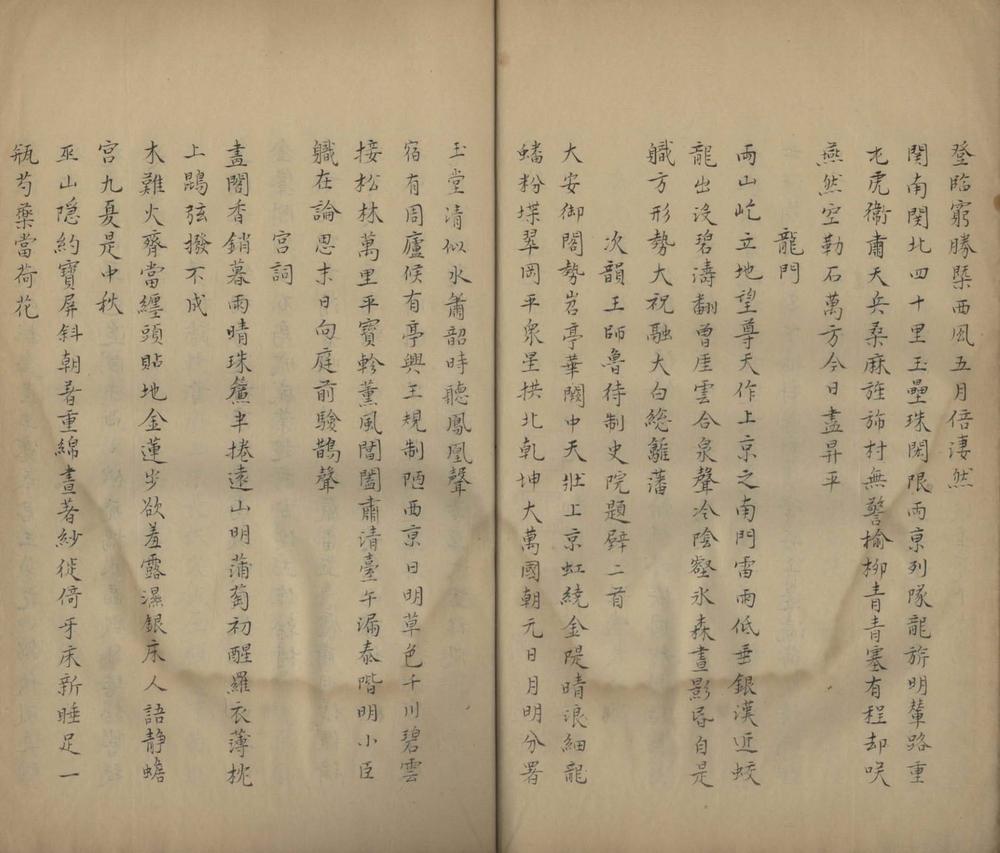 登臨窮勝槩西風五月倍淒然
関南関北四十里玉壘珠閎限兩京列隊龍旂明輦路重
屯虎衞肅天兵桑麻旌斾村無警榆柳青青塞有程却咲
燕然空勒石萬方今日盡昇平
龍門
兩山屹立地望尊天作上京之南門雷雨低垂銀漢近蛟
龍出没碧濤翻曽厓雲合泉聲冷陰壑氷森晝影昏自是
職方形勢大祝融大白総離藩
次韻王師魯待制史院題壁二首
大安御閣勢岧亭華闕中天壯上京虹繞金隄晴浪細龍
蟠粉堞翠岡平衆星拱北乾坤大萬國朝元日月明分署
玉堂清似水簫韶時聽鳳凰聲
宿有周廬候有亭興王規制陋西京日明草色千川碧雲
接松林萬里平寳軫薰風閶闔肅清臺午漏泰階明小臣
職在論思末日向庭前驗鵲聲
宮詞
畫閣香銷暮雨晴珠簾半捲遠山明蒲萄初醒羅衣薄枕
上鵾弦撥不成
木難火齊當纒頭貼地金蓮步欲羞露濕銀床人語静蟾
宮九夏是中秋
巫山隱約寶屏斜朝着重綿晝著紗徙倚牙床新睡足一
瓶芍藥當荷花